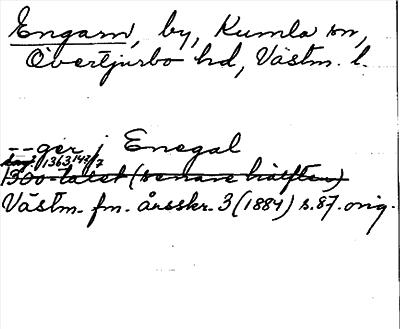 Engarn, by, Kumla sn,
Övertjurbo hd, Västm. l.
--ger j Enegal
1363 14/7
1300-talet (senare hälften)
Västm. fm. årsskr. 3 (1884) s. 87. orig.